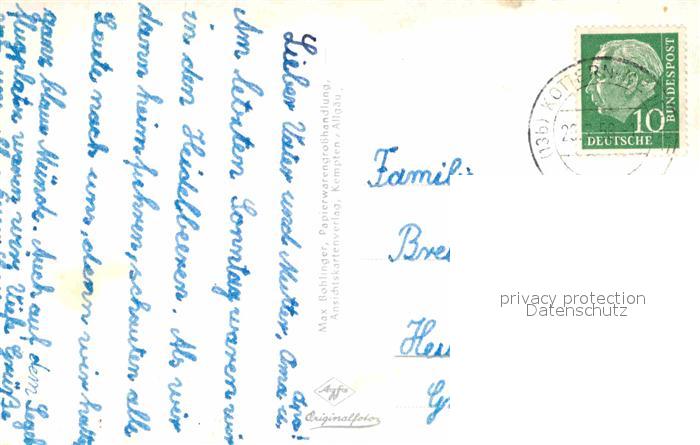 Lieber Vater und Mutter, Oma u. Opa!
Am letzten Sonntag waren wir
in den Heidelbeeren. Als wir
dann heimfuhren, schauten alle
Leute nach uns, denn wir hatten
ganz blaue Münde. Auch auf dem Segel
flugplatz waren wir. Viele Grüße
Max Bohlinger, Papierwarengroßhandlung,
Ansichtskartenverlag, Kempten / Allgäu
Agfa
Originalfoto
(13b) KOTTERN
10
DEUTSCHE
BUNDESPOST
Famili
Bre
privacy protection
Datenschutz
Heu
G